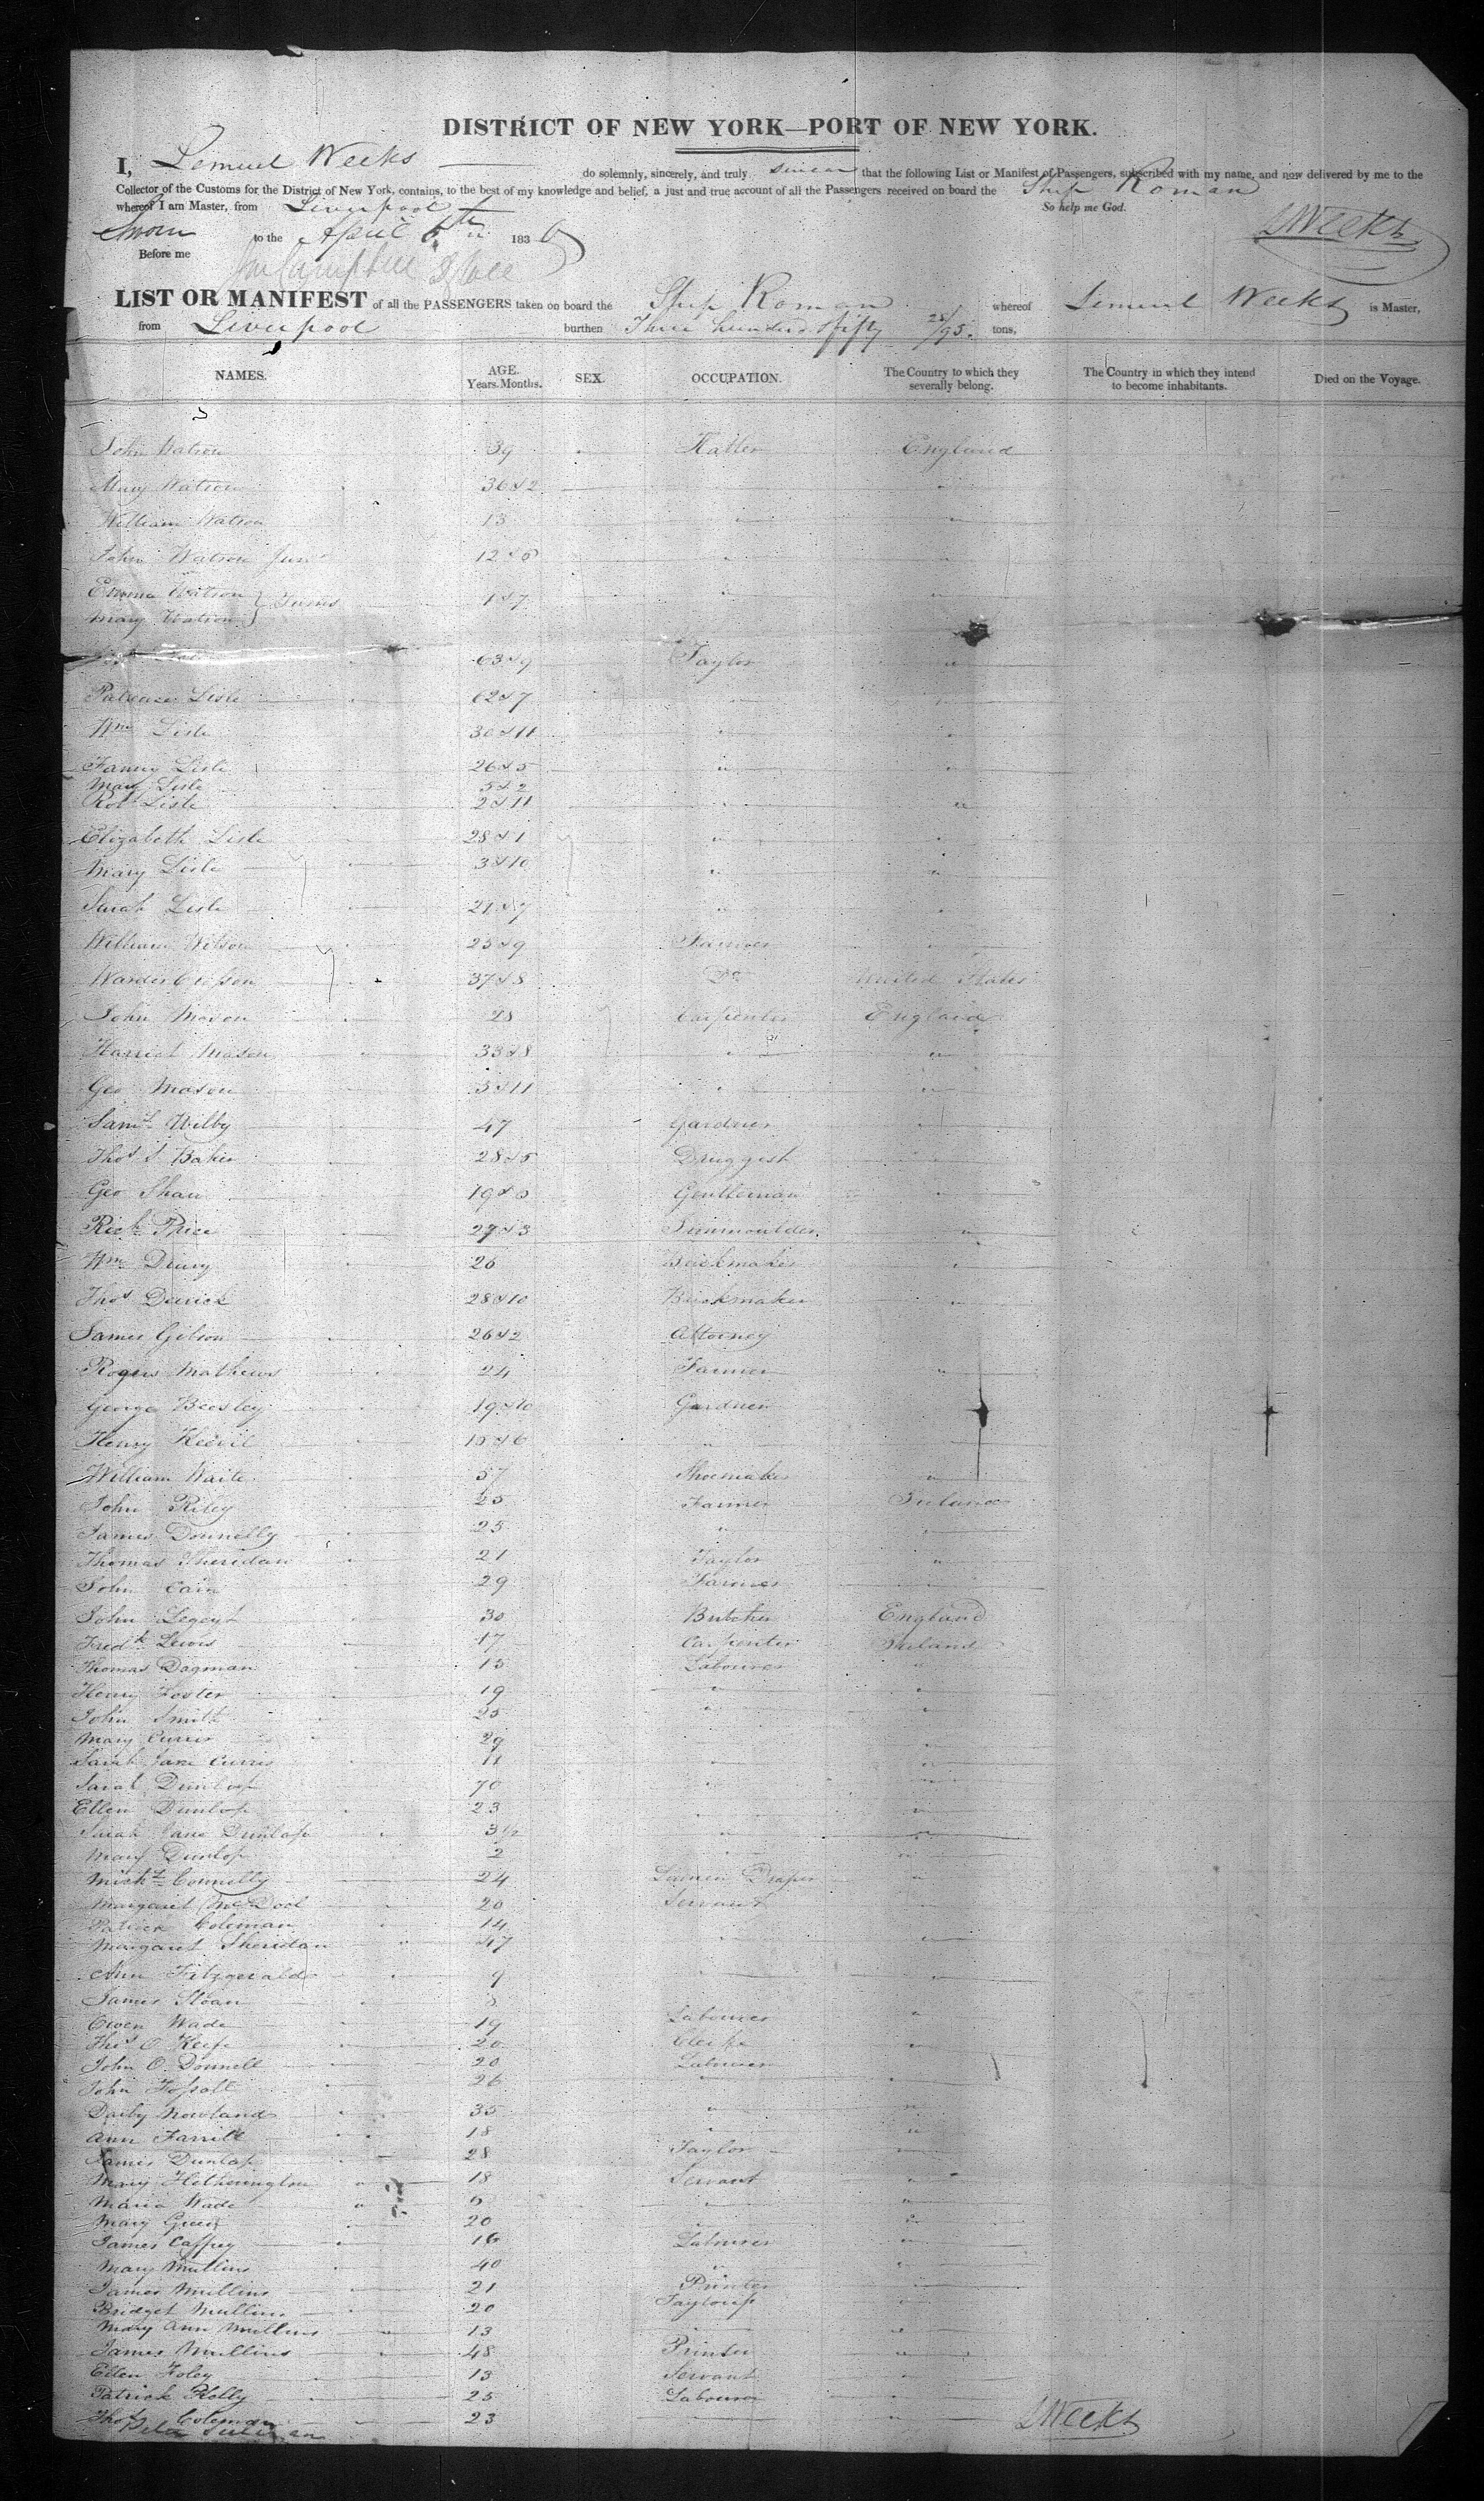 DISTRICT OF NEW YORK—PORT OF NEW YORK.
I, Lemuel Weeks do solemnly, sincerely, and truly swear that the following List or Manifest of Passengers, subscribed with my name, and now delivered by me to the
Collector of the Customs for the District of New York, contains, to the best of my knowledge and belief, a just and true account of all the Passengers received on board the Ship Roman
whereof I am Master, from Liverpool So help me God.
Sworn to the April 6th 1836 LWeeks
Before me
LIST OR MANIFEST of all the PASSENGERS taken on board the Ship Roman whereof Lemuel Weeks is Master,
from Liverpool burthen Three hundred & fifty 28/95 tons,
NAMES. AGE. Years. Months. SEX. OCCUPATION. The Country to which they severally belong. The Country in which they intend to become inhabitants. Died on the Voyage.
John Watson 39 Hatter England
Mary Watson 36&2
William Watson 13 " "
John Watson Junr 12&6 " "
Emma Watson } Twins 1&7 " "
Mary Watson }
63&9 Taylor "
Patience Lisle 62&7 "
Wm Lisle 30&11 " "
Fanny Lisle 26&5 " "
Mary Lisle 5&2
Robt Lisle 2&11 " "
Elizabeth Lisle 28&1 " "
Mary Lisle 3&10 " "
Sarah Lisle 21&9 " "
William Wilson 25&9 Farmer "
Warder Cresson 37&8 Do United States
John Mason 28 Carpenter England
Harriet Mason 33&8 " "
Geo Mason 3&11 " "
Saml Wilby 47 Gardner "
Thos S Baker 28&5 Druggist "
Geo Shaw 19&6 Gentleman "
Richd Price 29&3 Ironmoulder "
Wm Drury 26 Brickmaker "
Thos Derrick 28&10 Brickmaker "
James Gibson 26&2 Attorney
Rogers Mathews 24 Farmer "
George Beesley 19&10 Gardner
Henry Keevil 15&6 "
William Waite 57 Shoemaker "
John Riley 25 Farmer Ireland
James Donnelly 25 " "
Thomas Sheridan 21 Taylor "
John Cain 29 Farmer
John Legeyt 30 Butcher England
Fredk Lewis 17 Carpenter Ireland
Thomas Dogman 15 Labourer "
Henry Foster 19 " "
John Smith 25 " "
Mary Currie 29 "
Sarah Jane Currie 11 "
Sarah Dunlop 70 "
Ellen Dunlop 23 "
Sarah Jane Dunlop 3½ " "
Mary Dunlop 2 "
Michl Connolly 24 Linnen Draper "
Margaret McDool 20 Servant "
Patrick Coleman 14
Margaret Sheridan 47 " "
Ann Fitzgerald 9 "
James Sloan 8
Owen Wade 19 Labourer "
Thos O Keefe 20 "
John O Donnell 20 Labourer
John 26 " "
Darby Nowland 35 " "
Ann Farrell 18 " "
James Dunlop 28 Taylor "
Mary Hetherington 18 Servant "
Maria Wade 6 " "
Mary Green 20 "
James Caffrey 16 Labourer "
Mary Mullins 40 " "
James Mullins 21 Printer
Bridget Mullins 20 "
Mary Ann Mullins 13 "
James Mullins 48 Printer "
Ellen Foley 13 Servant "
Patrick Holly 25 Labourer "
Thos Coleman 23
LWeeks